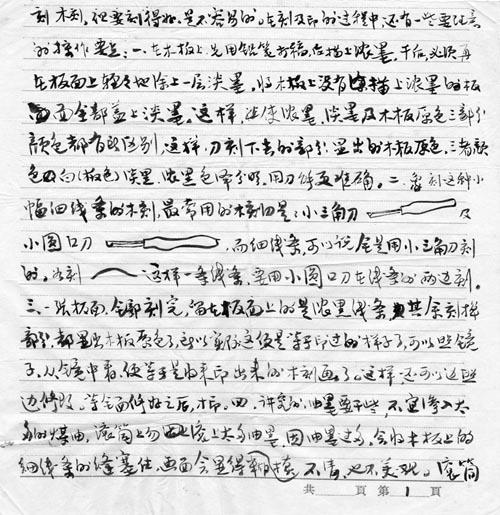 刻木刻，但要刻得好，是不容易的。在刻及印的过程中还有一些要注意
的操作要点：一、在木板上，先用铅笔打稿，后描上浓墨，干后，必须再
在板面上轻轻地涂上一层淡墨，将木板上没有描上浓墨的板
面全部盖上淡墨。这样，使浓墨，淡墨及木板原色三部分
颜色都有所区别，这样，刀刻下去的部分显出的木板原色，三者颜
色（板色）淡墨，浓墨色泽分明，用刀能更准确。二、刻这种小
幅细线条的木刻，最常用的木刻刀是：小三角刀 及
小圆口刀 ，而细线条，可以说全是用小三角刀刻
的。 这样一条线条，要用小圆口刀在线条的两边刻。
三、一块板面，全部刻完，留在板面上的是浓黑线条，其余刻掉
部分，都显出木板原色了，所以实际这便是等于印过的样子了，可以照镜
子，从镜中看，便等于是印出来的木刻画了。这样还可以边照
边修改。等全面修好之后，才印。四、油墨要干些，不宜掺入太
多的煤油，滚筒上勿滚上太多油墨，因油墨过多，会将木板上的
细线条的缝塞住，画面会显得糊，不清，也不美观。滚筒
共 页 第 1 页